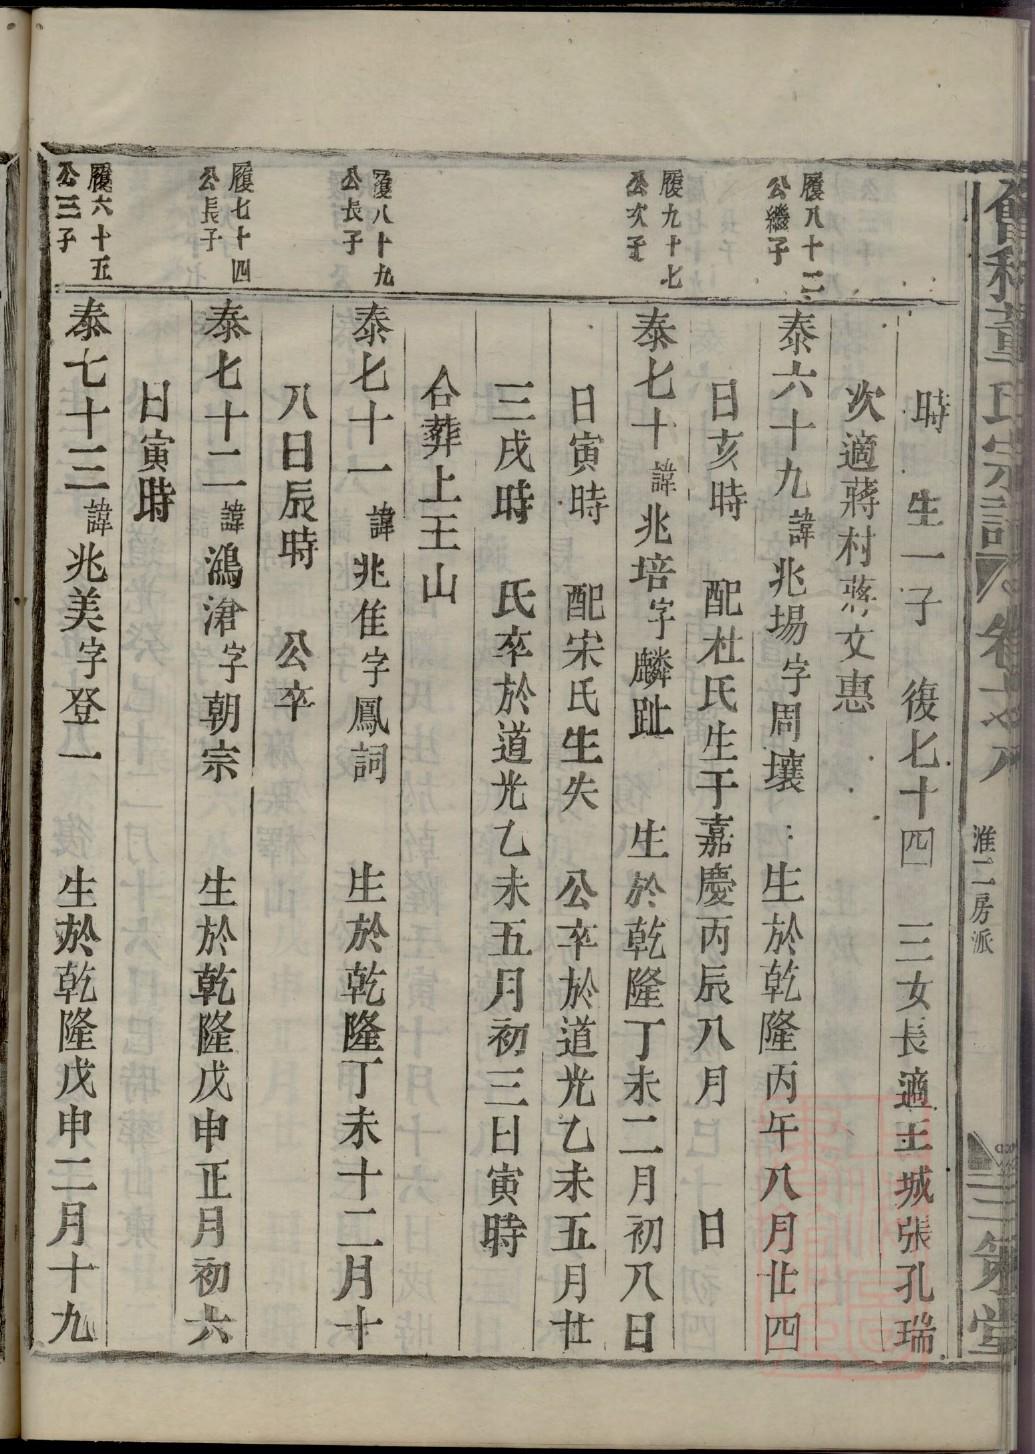 會稽董氏宗譜 卷
淮二房派
三策堂
時 生一子 復七十四 三女長適王城張孔瑞
次適蔣村蔣文惠
履八十三
公繼子
泰六十九諱兆場字周壤 生於乾隆丙午八月廿四
日亥時 配杜氏生于嘉慶丙辰八月 日
履九十七
公次子
泰七十諱兆培字麟趾 生於乾隆丁未二月初八日
日寅時 配宋氏生失 公卒於道光乙未五月廿
三戌時 氏卒於道光乙未五月初三日寅時
合葬上王山
履八十九
公長子
泰七十一諱兆隹字鳳詞 生於乾隆丁未十二月十
八日辰時 公卒
履七十四
公長子
泰七十二諱鴻滄字朝宗 生於乾隆戊申正月初六
日寅時
履六十五
公三子
泰七十三諱兆美字登一 生於乾隆戊申二月十九